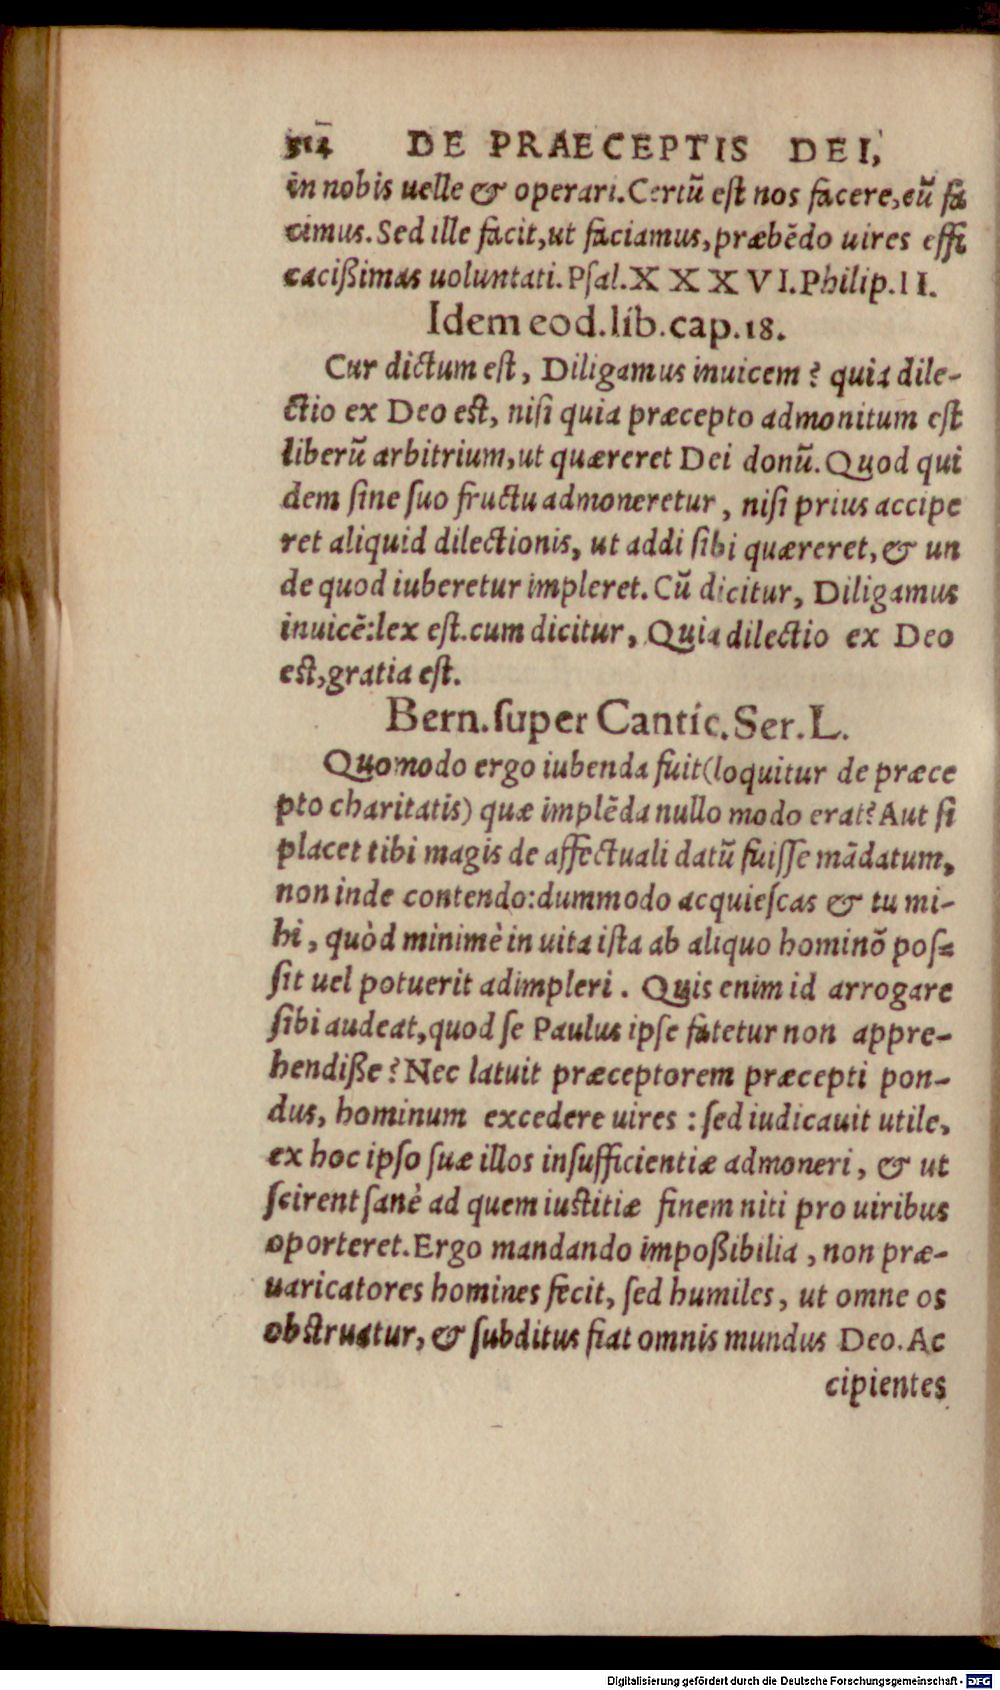 514 DE PRAECEPTIS DEI,
in nobis uelle & operari. Certũ eſt nos facere, cũ fa
cimus. Sed ille facit, ut faciamus, præbẽdo uires effi
cacißimas uoluntati. Pſal. X X X V I. Philip. I I.
Idem eod. lib. cap. 18.
Cur dictum eſt, Diligamus inuicem? quia dile-
ctio ex Deo eſt, niſi quia præcepto admonitum eſt
liberũ arbitrium, ut quæreret Dei donũ. Quod qui
dem ſine ſuo fructu admoneretur, niſi prius accipe
ret aliquid dilectionis, ut addi ſibi quæreret, & un
de quod iuberetur impleret. Cũ dicitur, Diligamus
inuicẽ: lex eſt. cum dicitur, Quia dilectio ex Deo
eſt, gratia eſt.
Bern. ſuper Cantic. Ser. L.
Quomodo ergo iubenda fuit (loquitur de præce
pto charitatis) quæ implẽda nullo modo erat? Aut ſi
placet tibi magis de affectuali datũ fuiſſe mãdatum,
non inde contendo: dummodo acquieſcas & tu mi-
hi, quòd minimè in uita iſta ab aliquo hominõ poſ-
ſit uel potuerit adimpleri. Quis enim id arrogare
ſibi audeat, quod ſe Paulus ipſe fatetur non appre-
hendiße? Nec latuit præceptorem præcepti pon-
dus, hominum excedere uires: ſed iudicauit utile,
ex hoc ipſo ſuæ illos inſufficientiæ admoneri, & ut
ſcirent ſanè ad quem iuſtitiæ finem niti pro uiribus
oporteret. Ergo mandando impoßibilia, non præ-
uaricatores homines fecit, ſed humiles, ut omne os
obſtruatur, & ſubditus fiat omnis mundus Deo. Ac
cipientes
Digitalisierung gefördert durch die Deutsche Forschungsgemeinschaft - DFG